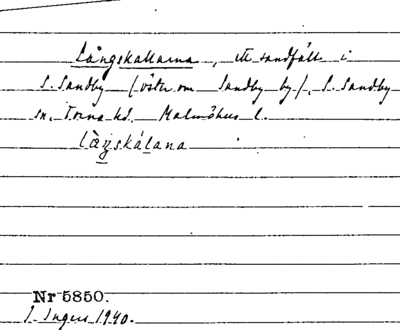 Långskallarna, ett sandfält i
S. Sandby (öster om Sandby by), S. Sandby
sn, Torna hd. Malmöhus l.
làŋskálana
Nr 5850.
I. Ingers 1940.